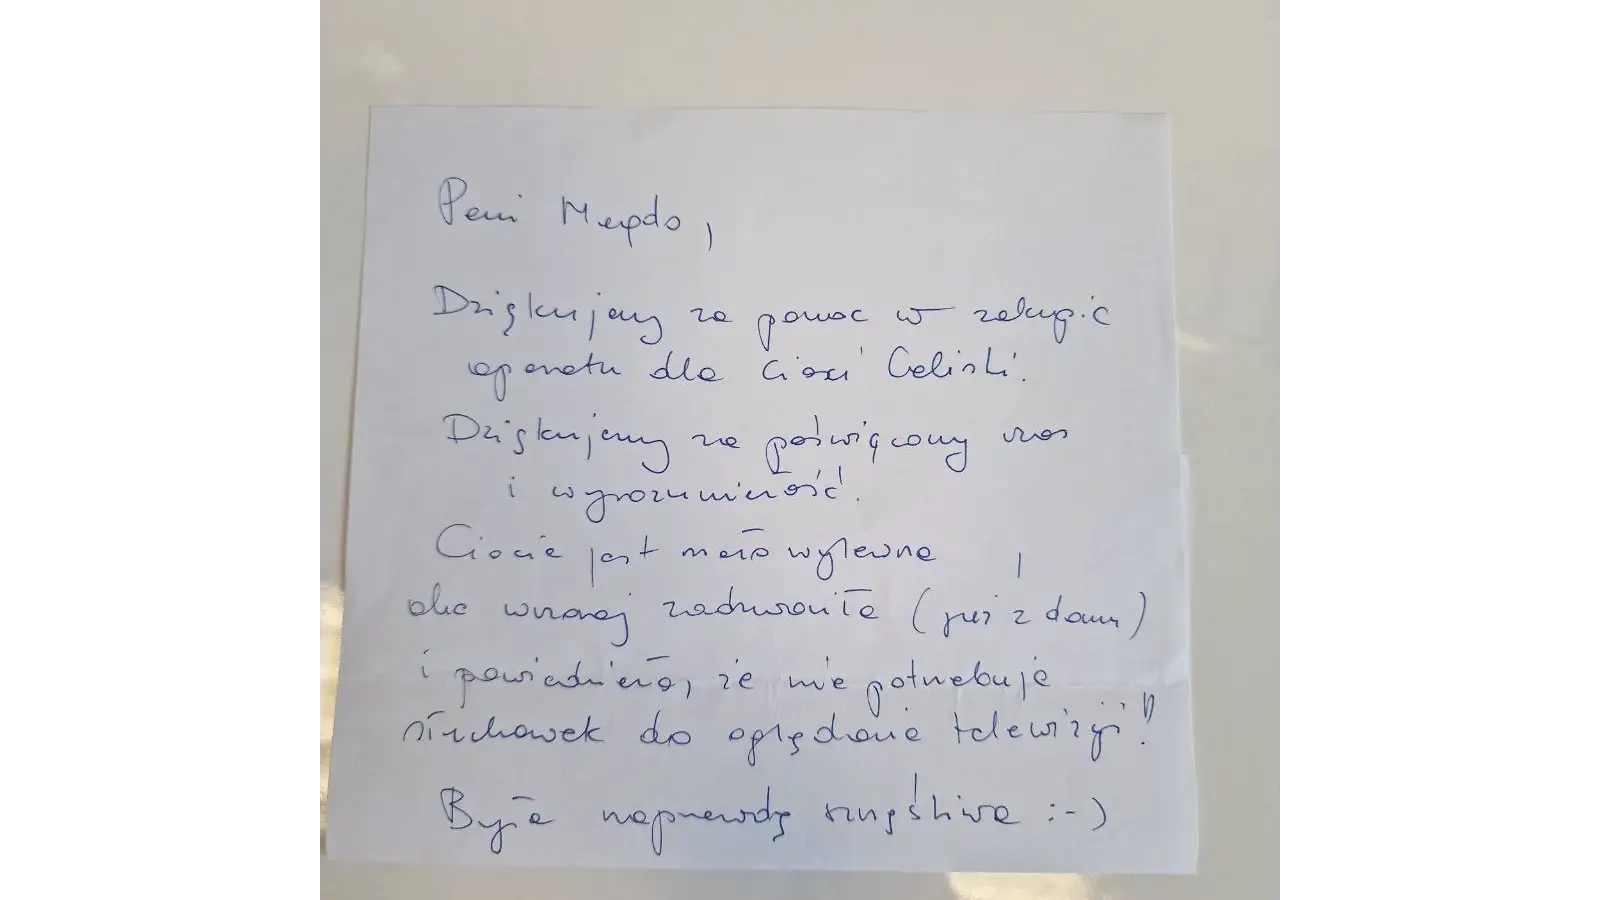 Pani Magdo,
Dziękujemy za pomoc w zakupie
aparatu dla Cioci Celinki.
Dziękujemy za poświęcony czas
i wyrozumiałość.
Ciocia jest mało wylewna
ale wczoraj zadzwoniła (już z domu)
i powiedziała, że nie potrzebuje
słuchawek do oglądania telewizji!!
Była naprawdę szczęśliwa :-)